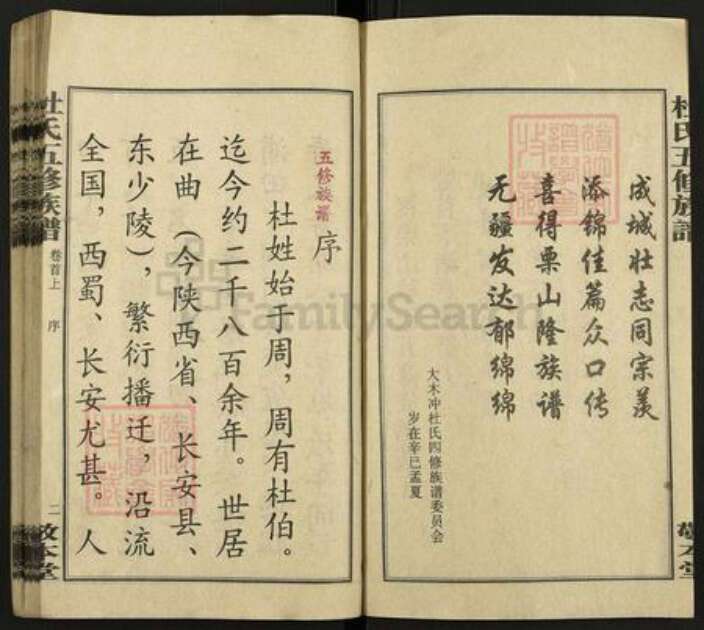 杜氏五修族谱
成城壮志同宗羡
添锦佳篇众口传
喜得栗山隆族谱
无疆发达郁绵绵
大木冲杜氏四修族谱委员会
岁在辛巳孟夏
敬本堂
五修族谱
序
杜姓始于周，周有杜伯。
迄今约二千八百余年。世居
在曲（今陕西省、长安县、
东少陵），繁衍播迁，沿流
全国，西蜀、长安尤甚。人
杜氏五修族谱
卷首上
序
二
敬本堂
FamilySearch